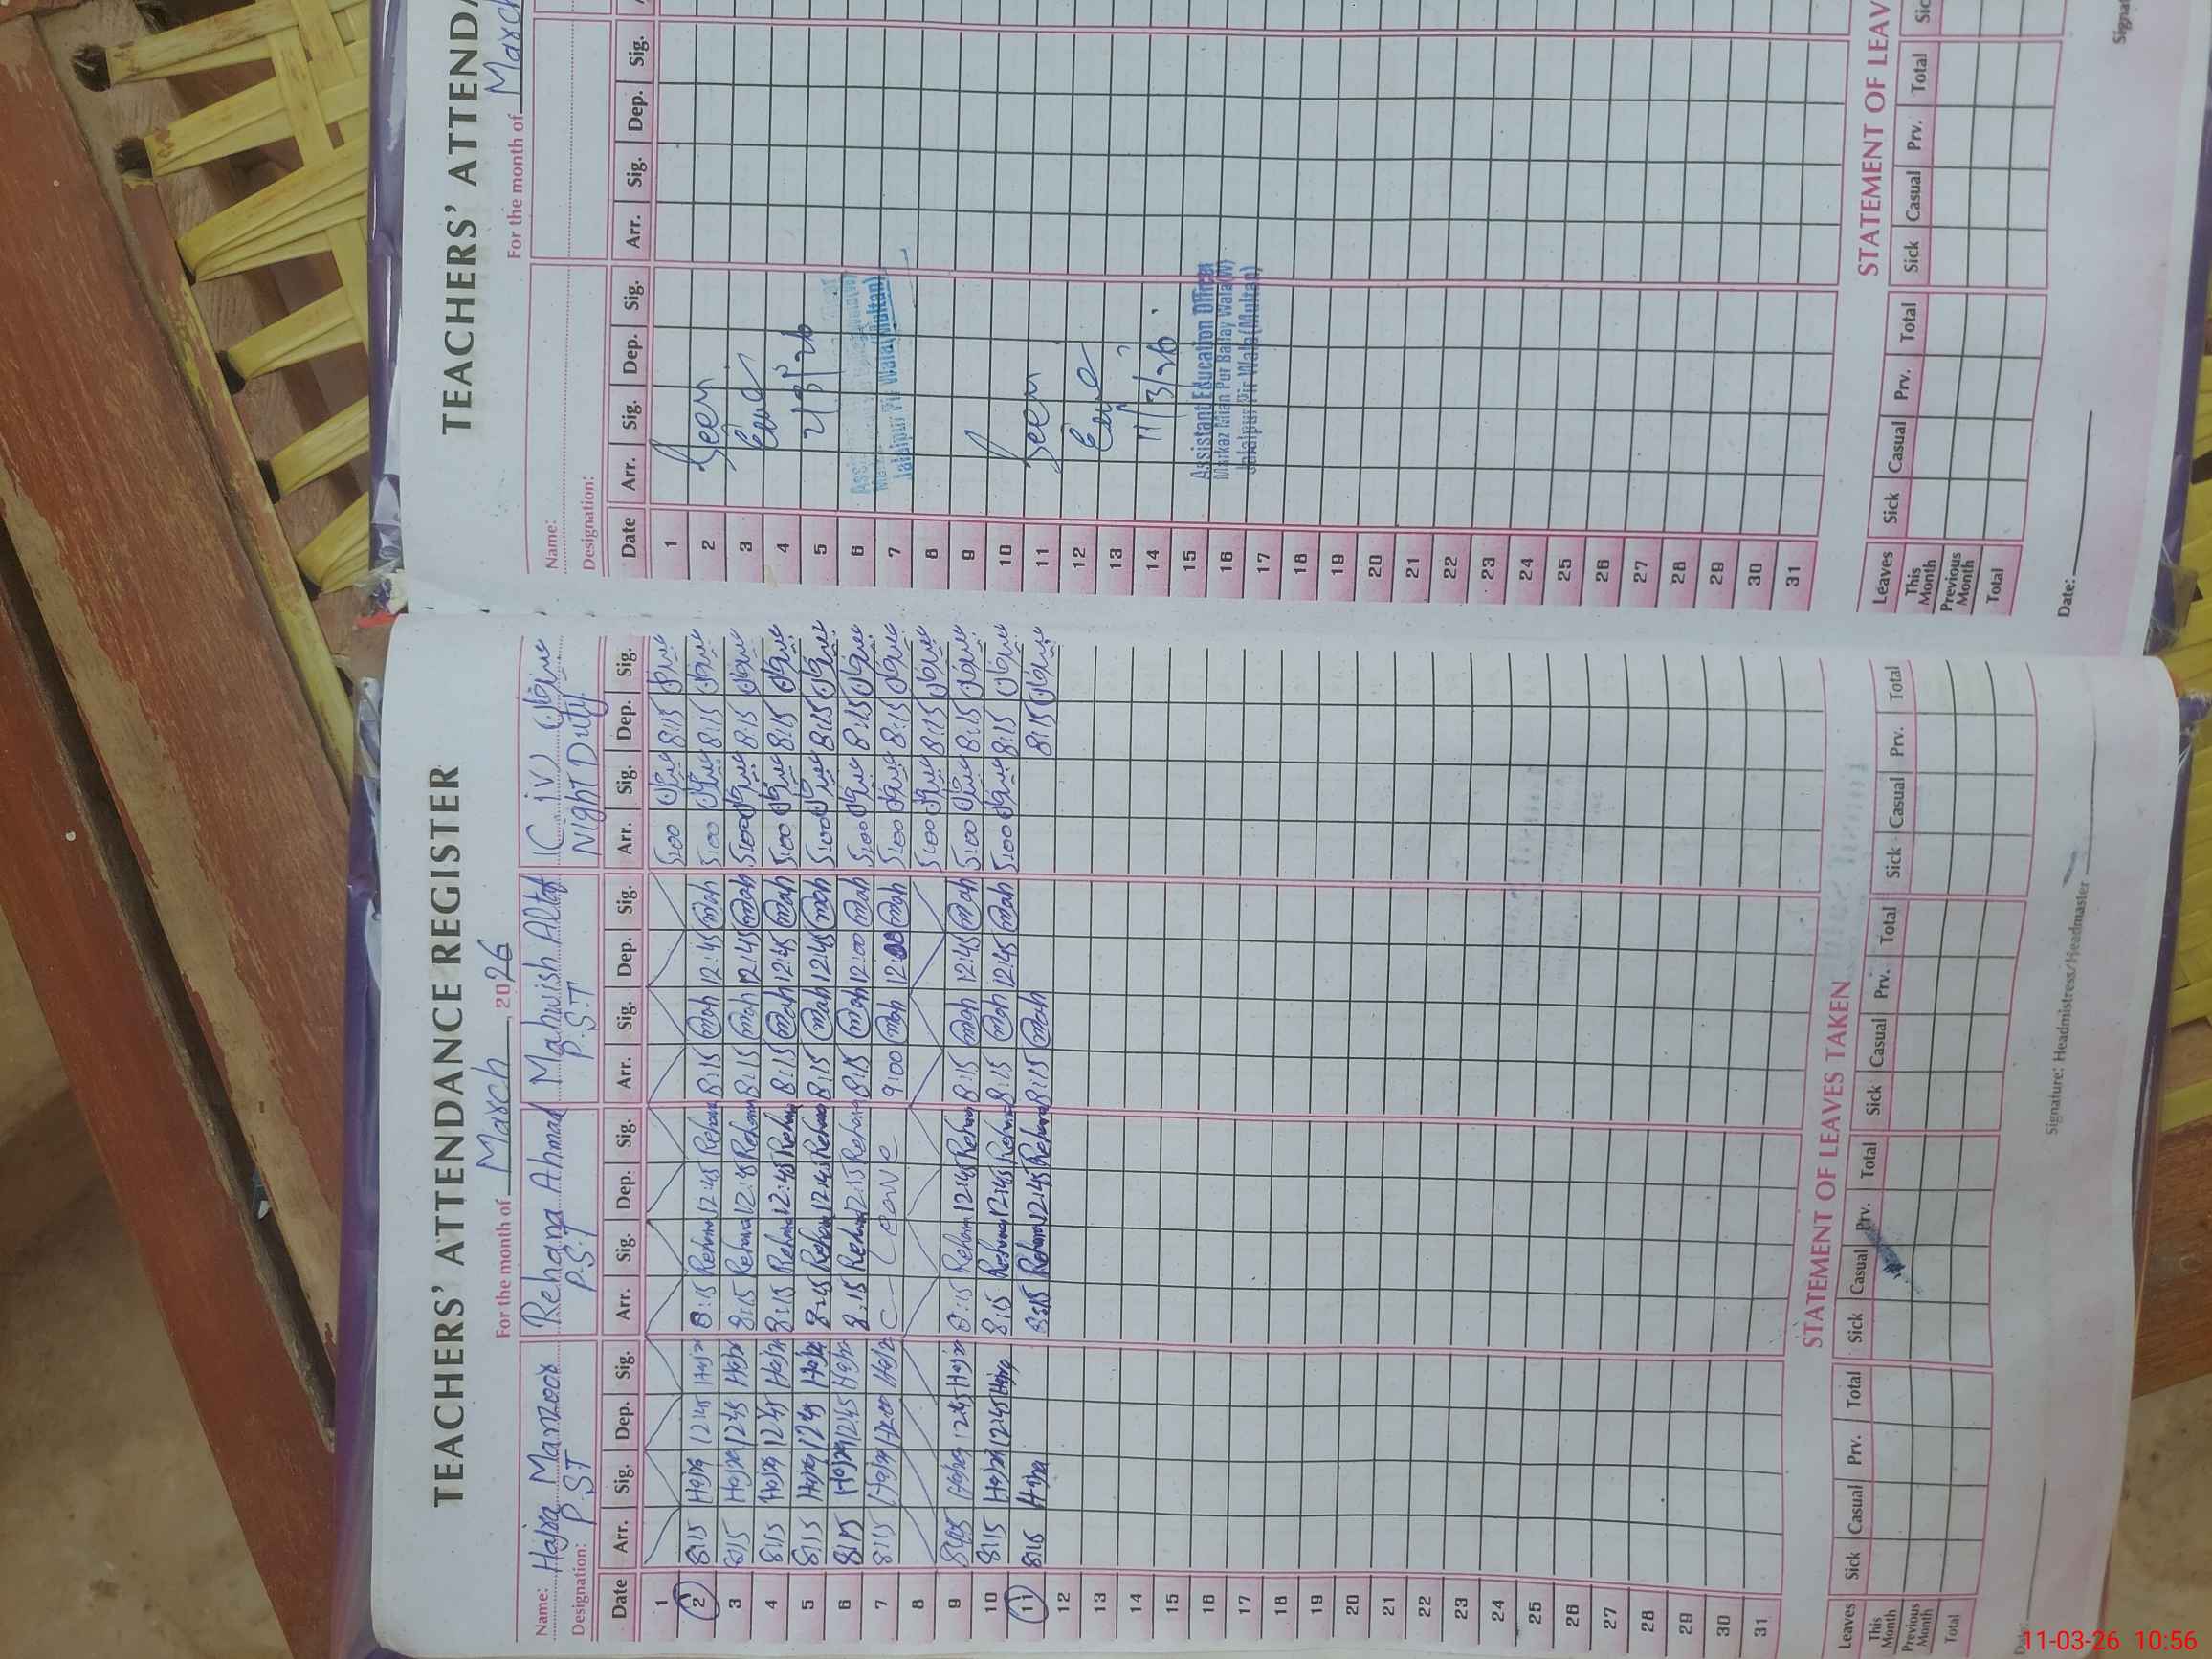 TEACHERS' ATTENDANCE REGISTER
For the month of March, 2026
Name: Hajra Manzoor Rehana Ahmad Mahwish Altaf C-iv)
Designation: P.S.T P.S.T P.S.T Night Duty
Date Arr. Sig. Dep. Sig. Arr. Sig. Dep. Sig. Arr. Sig. Dep. Sig. Arr. Sig. Dep. Sig.
1 5:00 8:15
2 8:15 Hajra 12:45 Hajra 8:15 Rehana 12:45 Rehana 8:15 Mah 12:45 Mah 5:00 8:15
3 8:15 Hajra 12:45 Hajra 8:15 Rehana 12:45 Rehana 8:15 Mah 12:45 Mah 5:00 8:15
4 8:15 Hajra 12:45 Hajra 8:15 Rehana 12:45 Rehana 8:15 Mah 12:45 Mah 5:00 8:15
5 8:15 Hajra 12:45 Hajra 8:15 Rehana 12:45 Rehana 8:15 Mah 12:45 Mah 5:00 8:15
6 8:15 Hajra 12:45 Hajra 8:15 Rehana 12:15 Rehana 8:15 Mah 12:00 Mah 5:00 8:15
7 8:15 Hajra 12:00 Hajra C-Leave 9:00 Mah 12:00 Mah 5:00 8:15
8 5:00 8:15
9 Hajra 12:45 Hajra 8:15 Rehana 12:45 Rehana 8:15 Mah 12:45 Mah 5:00 8:15
10 8:15 Hajra 12:45 Hajra 8:15 Rehana 12:45 Rehana 8:15 Mah 12:45 Mah 5:00 8:15
11 8:15 Hajra 8:15 Rehana 12:45 Rehana 8:15 Mah 8:15
12
13
14
15
16
17
18
19
20
21
22
23
24
25
26
27
28
29
30
31
STATEMENT OF LEAVES TAKEN
Leaves Sick Casual Prv. Total Sick Casual Prv. Total Sick Casual Prv. Total Sick Casual Prv. Total
This Month
Previous Month
Total
Signature: Headmistress/Headmaster
TEACHERS' ATTENDA
For the month of March
Name:
Designation:
Date Arr. Sig. Dep. Sig. Arr. Sig. Dep. Sig.
1
2
3
4
5 2/3/26
6
7 Jalalpur Pir Wala (Multan)
8
9
10
11
12
13
14 11/3/26
15 Assistant Education Officer
16 Markaz Mian Pur Ballay Wala (W)
17 Jalalpur Pir Wala (Multan)
18
19
20
21
22
23
24
25
26
27
28
29
30
31
STATEMENT OF LEAV
Leaves Sick Casual Prv. Total Sick Casual Prv. Total Sic
This Month
Previous Month
Total
Date:
Signat
11-03-26 10:56